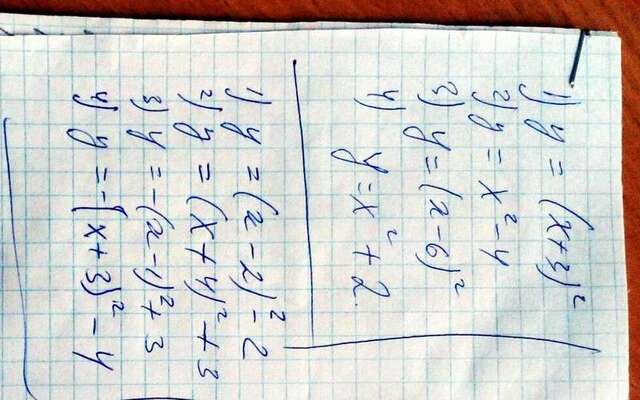 1) y = (x+3)²
2) y = x² - 4
3) y = (x-6)²
4) y = x² + 2
1) y = (x-2)² - 2
2) y = (x+4)² + 3
3) y = -(x-1)² + 3
4) y = -(x+3)² - 4